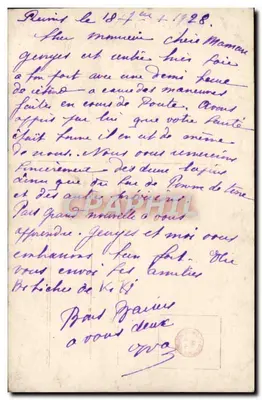 Reims le 18 1928
Cher monsieur chère Maman
Georges est rentré hier soir
a bon port avec une demi heure
de retard a cause des manœuvres
faites en cours de route. Avons
appris par lui que votre santé
était bonne il en est de même
de nous. Nous vous remercions
sincèrement des deux lapins
ainsi que du sac de Pomme de terre
et des
Pas grand nouvelle a vous
apprendre. Georges et moi vous
embrassons bien fort.
vous envoi les amitiés
de Ki Ki
Bons Baisers
a vous deux